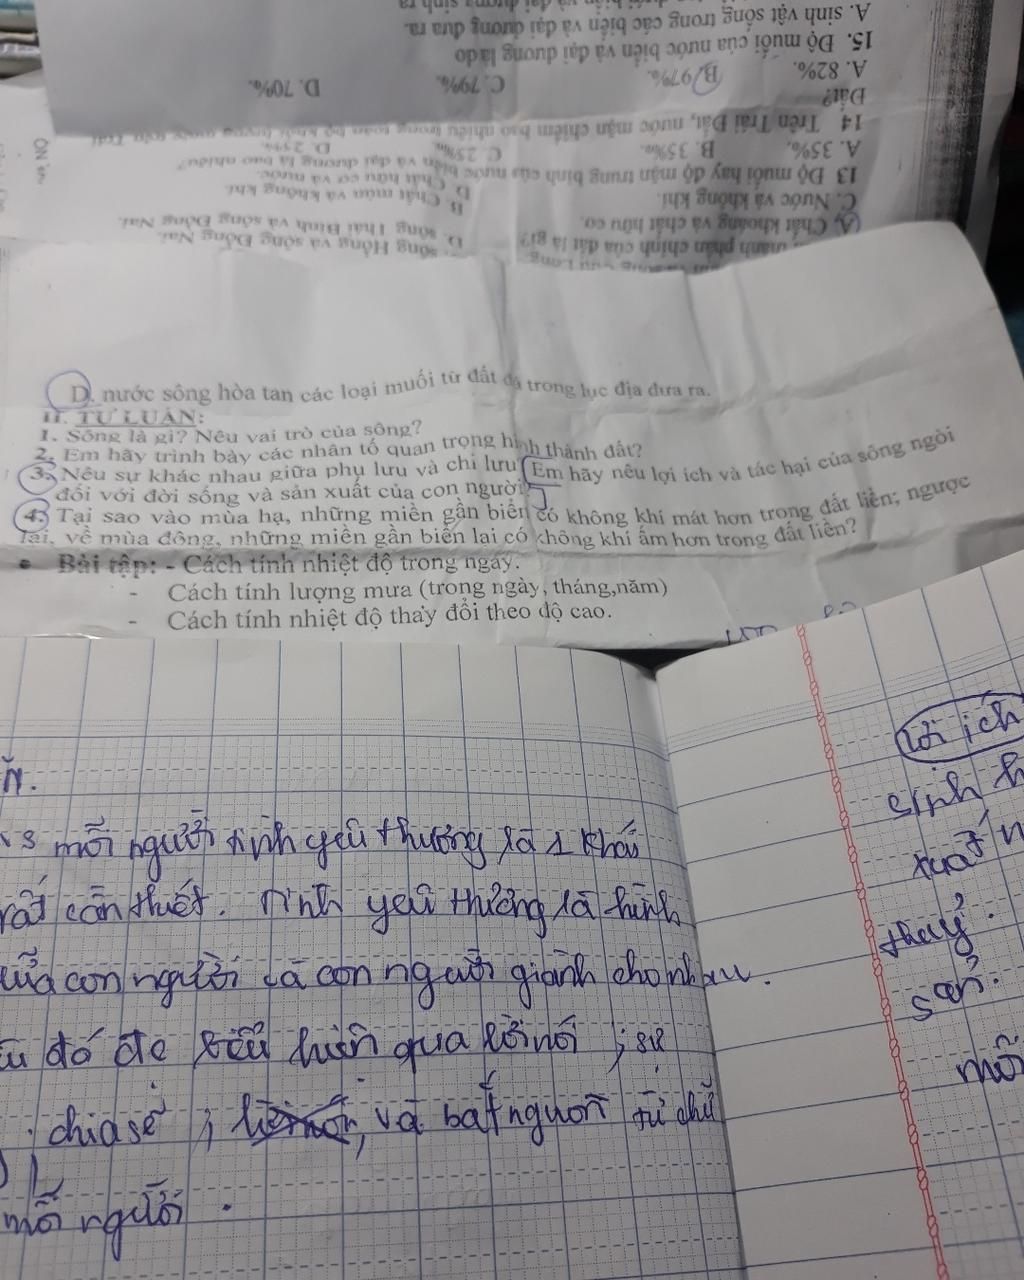 A. sinh vật sống trong các biển và đại dương đưa ra.
15. Độ muối của nước biển và đại dương là do
A. 82%. B. 97%. C. 79%. D. 70%.
Đất?
14 Trên Trái Đất, nước mặn chiếm bao nhiêu trong toàn bộ khối lượng nước trên Trái
A. 35%. B. 35‰. C. 25‰. D. 25%.
13 Độ muối hay độ mặn trung bình của nước biển và đại dương là bao nhiêu?
C. Nước và không khí. D. Chất hữu cơ và nước.
A. Chất khoáng và chất hữu cơ. B. Chất mùn và không khí.
thành phần chính của đất là gì?
D. sông Thái Bình và sông Đồng Nai.
sông Hồng và sông Đồng Nai.
D. nước sông hòa tan các loại muối từ đất đá trong lục địa đưa ra.
II. TỰ LUẬN:
1. Sông là gì? Nêu vai trò của sông?
2. Em hãy trình bày các nhân tố quan trọng hình thành đất?
3. Nêu sự khác nhau giữa phụ lưu và chi lưu? Em hãy nêu lợi ích và tác hại của sông ngòi
đối với đời sống và sản xuất của con người?
4. Tại sao vào mùa hạ, những miền gần biển có không khí mát hơn trong đất liền; ngược
lại, về mùa đông, những miền gần biển lại có không khí ấm hơn trong đất liền?
• Bài tập: - Cách tính nhiệt độ trong ngày.
- Cách tính lượng mưa (trong ngày, tháng,năm)
- Cách tính nhiệt độ thay đổi theo độ cao.
mỗi người tình yêu thương là 1 khái
rất cần thiết. Tình yêu thương là tình
của con người và con người giành cho nhau.
đó đc biểu hiện qua lời nói ; sự
chia sẻ ; và bắt nguồn từ chữ
mỗi người.
Lợi ích
sinh h
xuất n
thuỷ.
sản.
mỗi